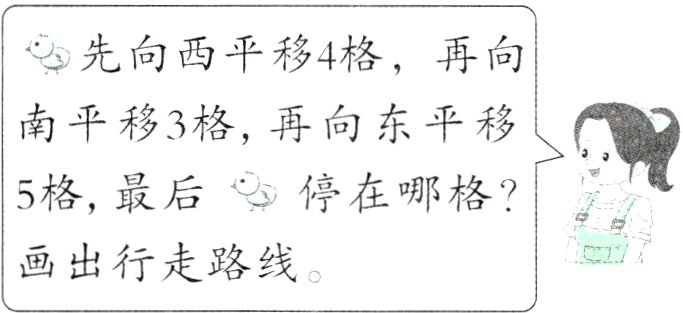 先向西平移4格，再向
南平移3格，再向东平移
5格，最后 停在哪格？
画出行走路线。